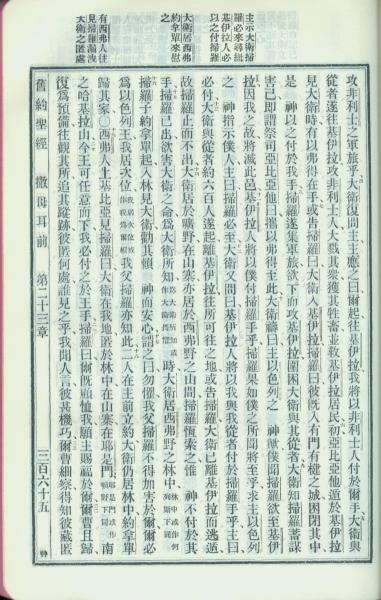 主示大衛掃
羅必來尋緝
基伊拉人必
以之付掃羅
大衛居西弗
約拿單來慰
之
有西弗人往
見掃羅洩
大衛之匿處
攻非利士之軍旅乎大衛復問主主應之曰爾起往基伊拉我將以非利士人付於爾手大衛與
從者遂往基伊拉攻非利士人大戮其衆獲其牲畜並救基伊拉居民初亞比亞他遁於基伊拉
見大衛時有以弗得在手或告掃羅曰大衛入基伊拉掃羅曰彼旣入有門有楗之城困閉其中
是 神以之付於我手掃羅遂集軍旅欲下而攻基伊拉圍困大衛與其從者大衛知掃羅蓄謀
害己即謂祭司亞比亞他曰攜以弗得至此大衛禱曰主以色列之 神歟僕聞掃羅欲至基伊
拉因我之故將滅此邑基伊拉人將以僕付掃羅手乎掃羅果如僕之所聞將至乎求主以色列
之 神指示僕人主曰掃羅必至大衛又問曰基伊拉人將以我與我從者付於掃羅手乎主曰
必付大衛與從者約六百人遂起離基伊拉往所可往之地或告掃羅大衛已離基伊拉而逃遁
故掃羅止而不出大衛居於曠野在山寨亦居於西弗野之山間掃羅恆索之惟 神不付於其
手掃羅已出欲害大衛之命爲大衛所知 時大衛居西弗野之林中
掃羅子約拿單起入林見大衛勸其賴 神而安心謂之曰勿懼我父掃羅手不得加害於爾爾必
爲以色列王我居次位 我父掃羅亦知此二人在主前立約大衛仍居林中約拿單
歸其家○西弗人上基比亞見掃羅曰大衛在我地匿於林中在山寨在耶是門 南
之哈基拉山今王可任意而下我必付之於王手掃羅曰爾旣顧恤我願主賜福於爾爾曹且歸
復爲預備往觀其所追其蹤跡彼匿何處誰見之乎我聞人言彼甚機巧爾曹細察得知彼藏匿
舊約聖經 撒母耳前 第二十三章 三百六十五